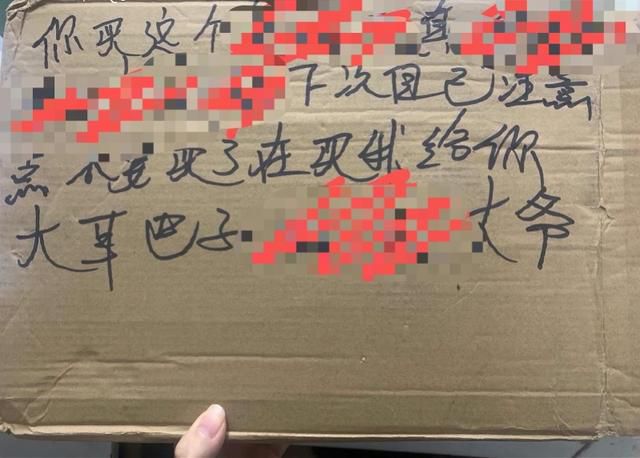 你买这个 真
下次自己注意
点 不要买了在买我给你
大耳巴子 大爷